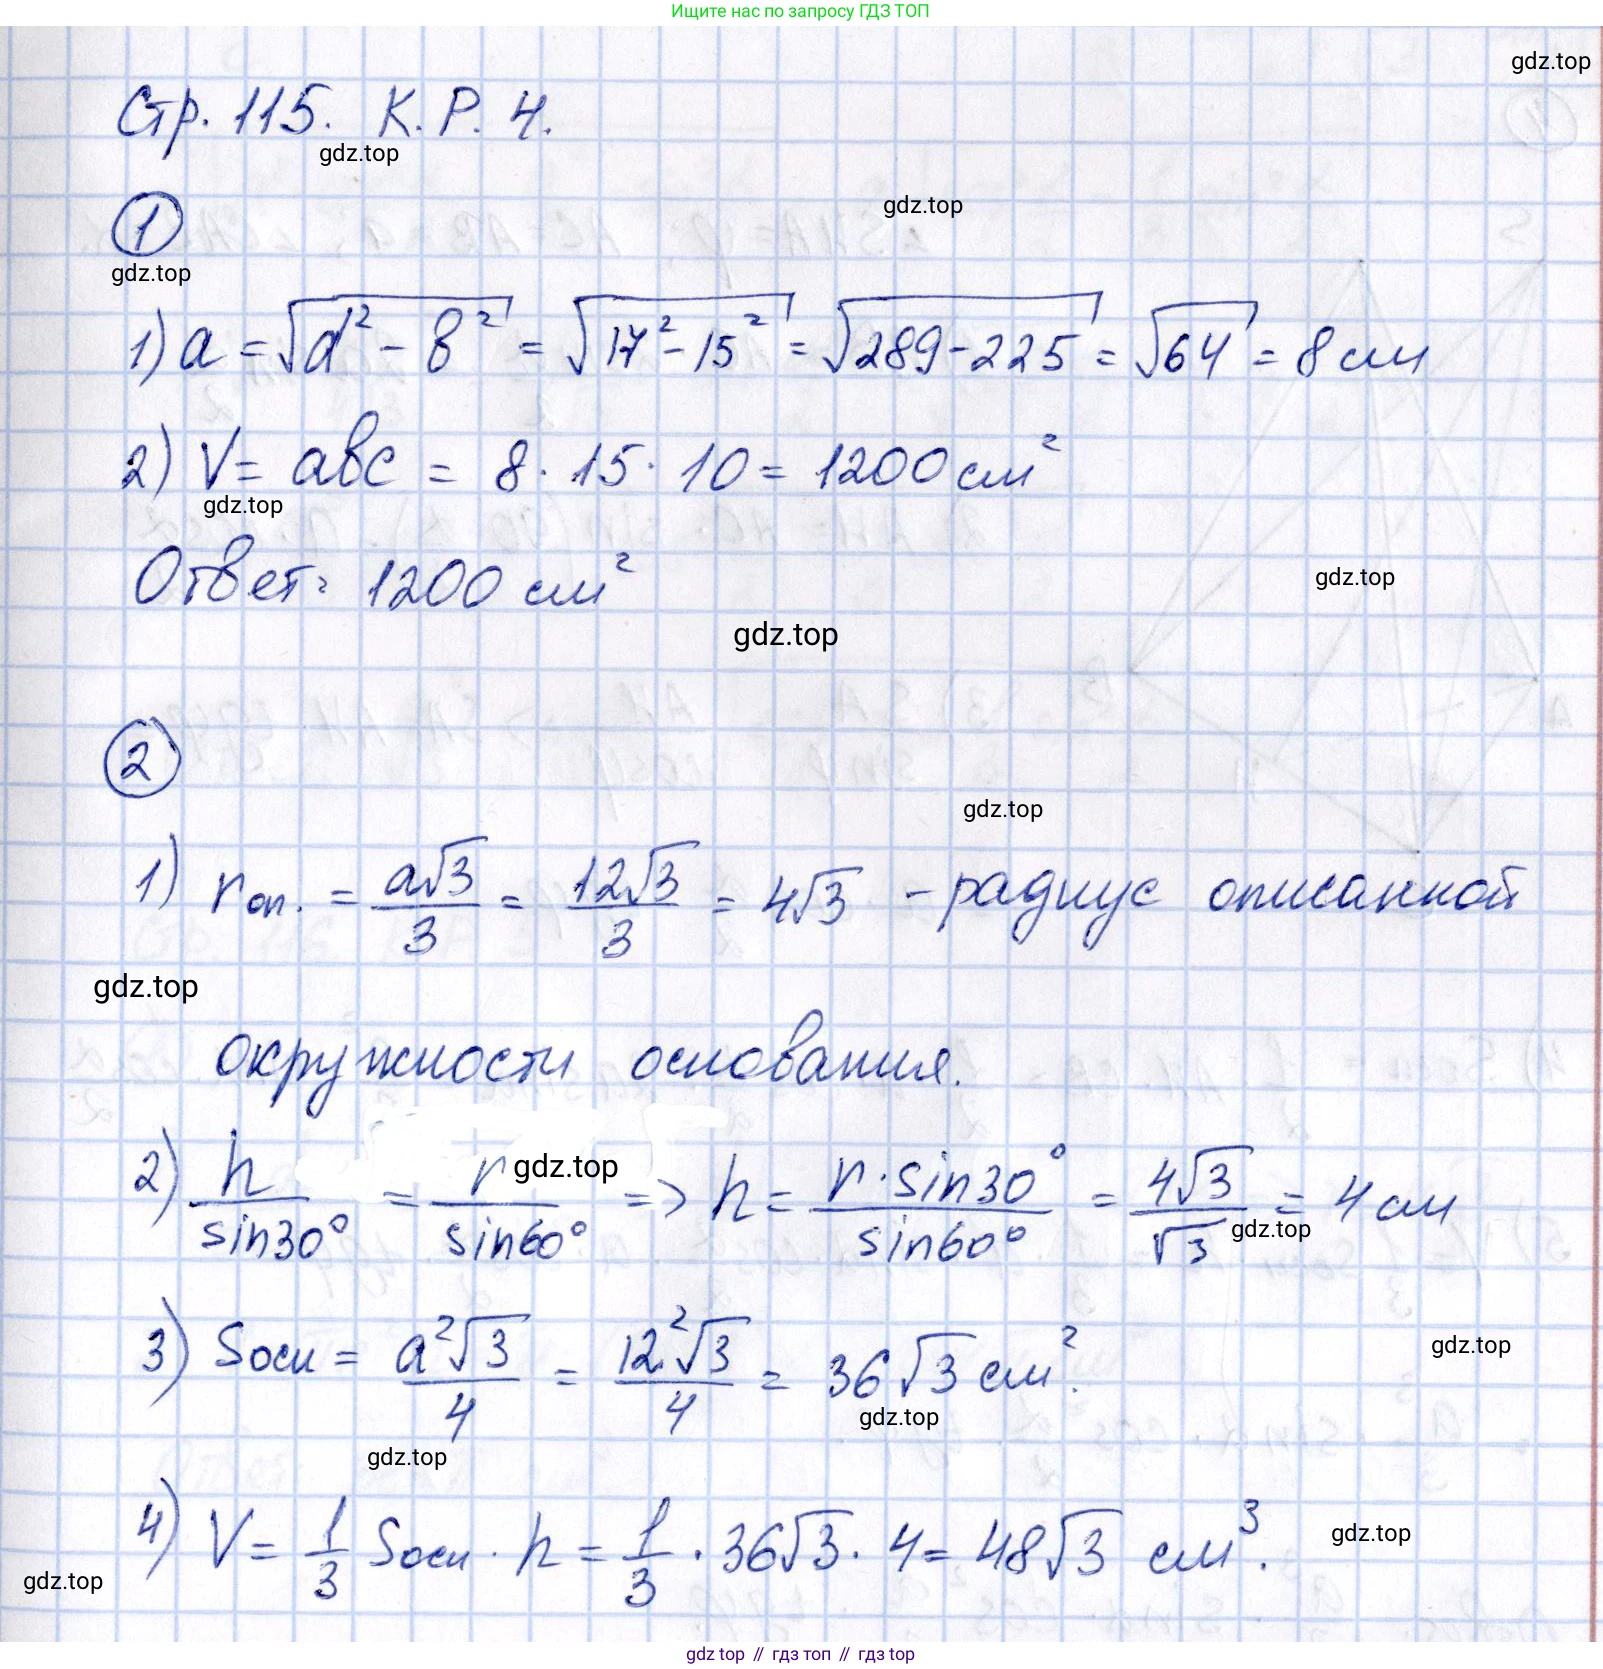 Ищите нас по запросу ГДЗ ТОП
gdz.top
Стр. 115. К. Р. 4.
gdz.top
1
gdz.top
gdz.top
1) a = √(d² - в²) = √(17² - 15²) = √(289 - 225) = √64 = 8 см
2) V = aвc = 8 · 15 · 10 = 1200 см²
gdz.top
Ответ: 1200 см²
gdz.top
gdz.top
2
gdz.top
1) rоп. = a√3/3 = 12√3/3 = 4√3 - радиус описанной
gdz.top
окружности основания.
2) h/sin30° = r/sin60° => h = r · sin30°/sin60° = 4√3/√3 = 4 см
gdz.top
gdz.top
3) Sосн = a²√3/4 = 12²√3/4 = 36√3 см².
gdz.top
gdz.top
gdz.top
4) V = 1/3 Sосн · h = 1/3 · 36√3 · 4 = 48√3 см³.
gdz.top
gdz.top
gdz top // гдз топ // гдз top